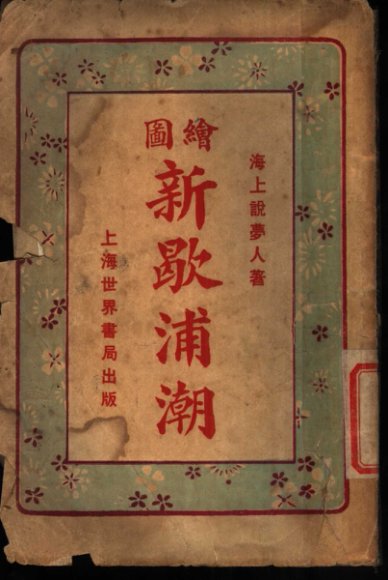 海上說夢人著
繪圖
新歇浦潮
上海世界書局出版